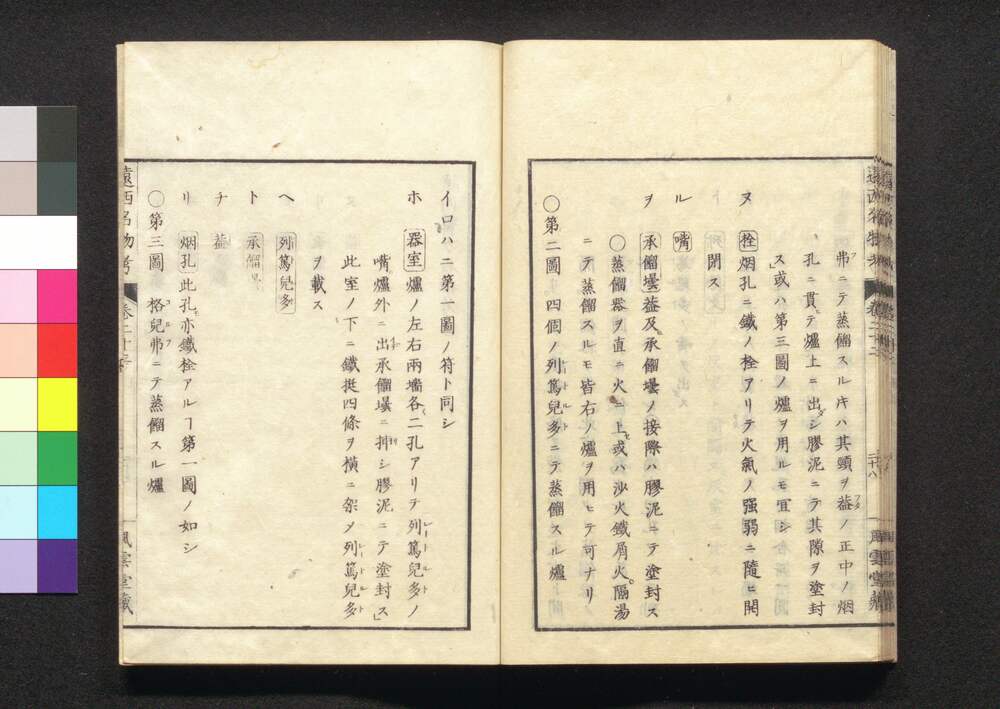 弗ニテ蒸餾スルキハ其頸ヲ葢ノ正中ノ烟
孔ニ貫テ爐上ニ出シ膠泥ニテ其隙ヲ塗封
ス或ハ第三圖ノ爐ヲ用ルモ宜シ
ヌ
栓 烟孔ニ鐵ノ栓アリテ火氣ノ強弱ニ隨ヒ開
閉ス
ル
嘴
ヲ
承餾壜葢及承餾壜ノ接際ハ膠泥ニテ塗封ス
〇蒸餾器ヲ直ニ火ニ上或ハ沙火鐵屑火隔湯
ニテ蒸餾スルモ皆右ノ爐ヲ用ヒテ可ナリ
〇第二圖 四個ノ列篤兒多ニテ蒸餾スル爐
遠西名物考 卷二十二
風雲堂藏
イロハニ第一圖ノ符ト同シ
ホ
器室 爐ノ左右兩墻各二孔アリテ列篤兒多ノ
嘴爐外ニ出承餾壜ニ挿シ膠泥ニテ塗封ス
此室ノ下ニ鐵挺四條ヲ横ニ架メ列篤兒多
ヲ載ス
ヘ
列篤兒多
ト
承餾
チ
葢
リ
烟孔 此孔亦鐵栓アルヿ第一圖ノ如シ
〇第三圖 格兒弗ニテ蒸餾スル爐